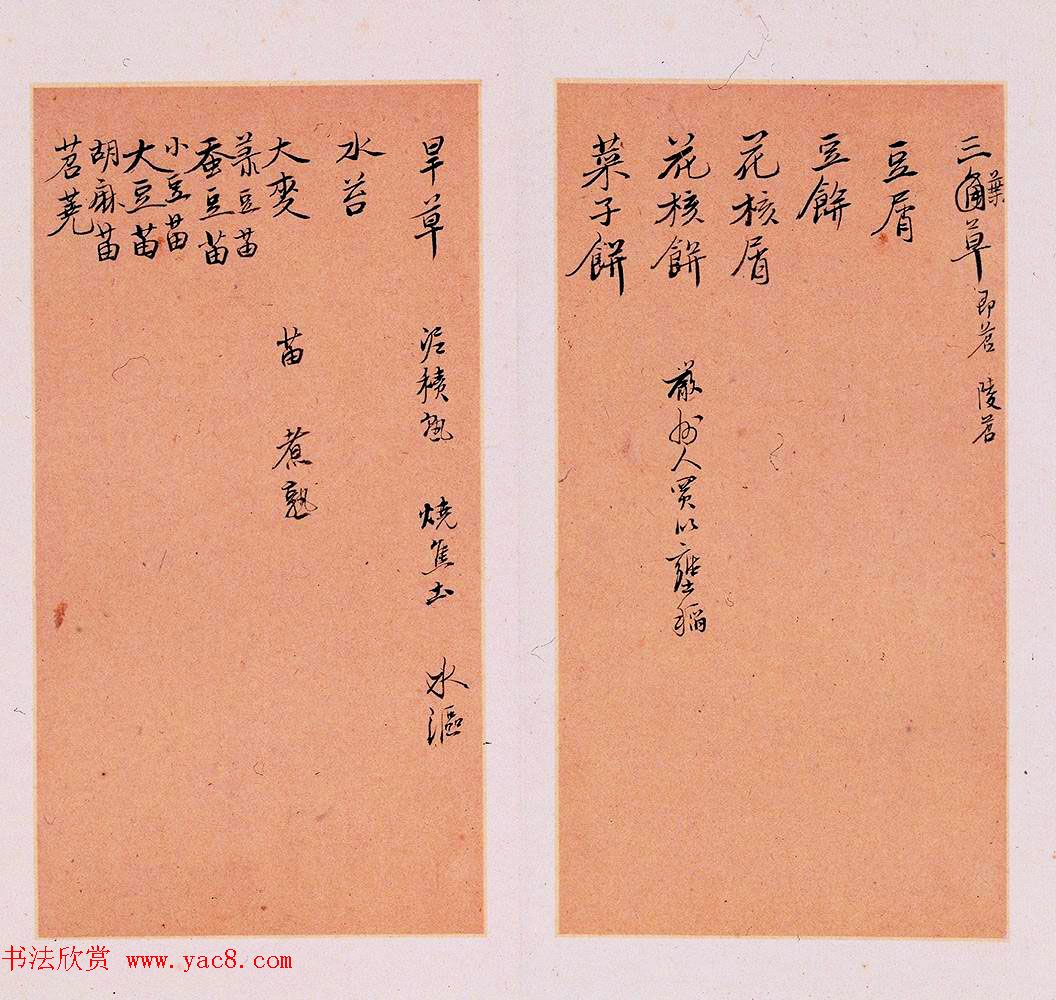 三葉草 即苕 陵苕
豆屑
豆餅
花核屑
花核餅 嚴州人買以壅稻
菜子餅
旱草 泥積窖 燒焦土 水漚
水苔
大麥 苗 煮熟
菉豆苗
蚕豆苗
小豆苗
大豆苗
胡麻苗
苕蕘
书法欣赏 www.yac8.com